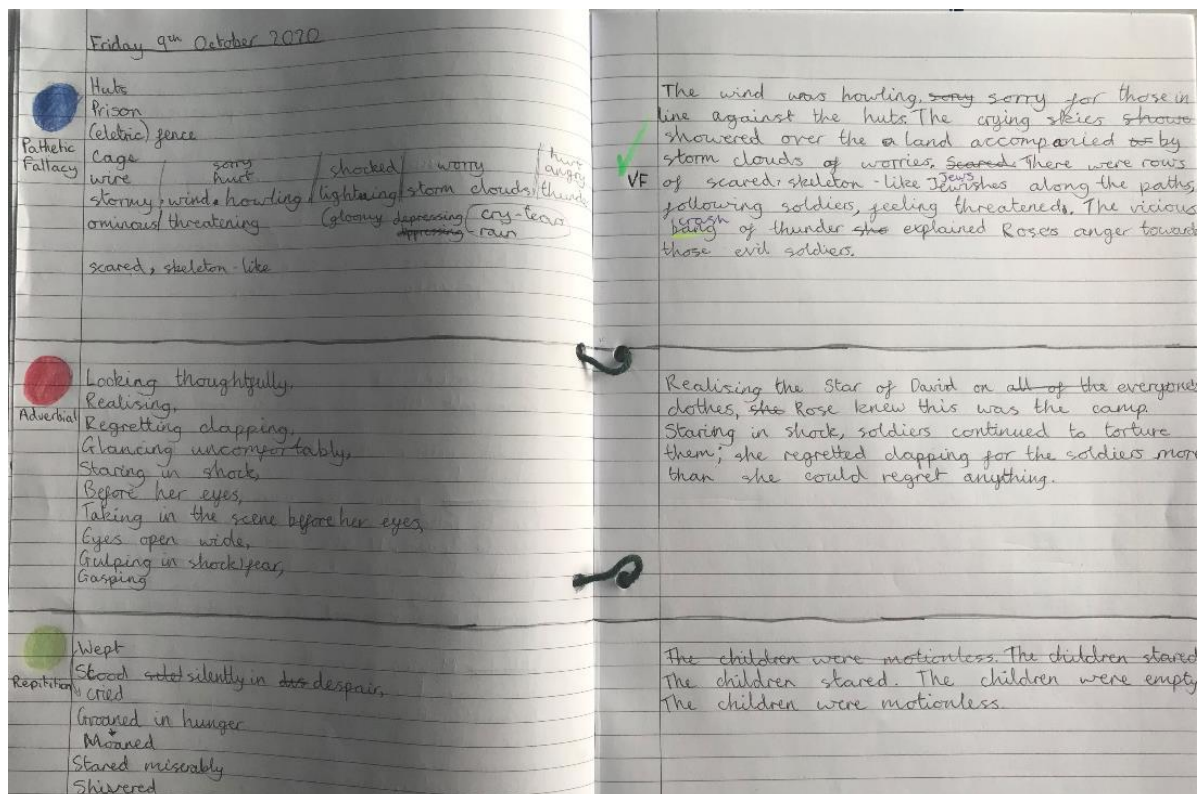 Friday 9th October 2020
Pathetic
Fallacy
Huts
Prison
(eletric) fence
Cage
wire
sorry
hurt
shocked
worry
hurt
angry
stormy, wind, howling / lightning / storm clouds, thunde
ominous / threatening
(gloomy depressing
oppressing
cry-tears
rain
scared, skeleton-like
Adverbial
Looking thoughtfully,
Realising,
Regretting clapping,
Glancing uncomfortably,
Staring in shock,
Before her eyes,
Taking in the scene before her eyes,
Eyes open wide,
Gulping in shock/fear,
Gasping
Repitition
Wept
Stood silently in despair,
cried
Groaned in hunger
Moaned
Stared miserably
Shivered
VF
The wind was howling, sorry sorry for those in
line against the huts. The crying skies showe
showered over the a land accompanied by
storm clouds of worries. Scared. There were rows
of scared, skeleton-like Jewishes Jews along the paths,
following soldiers, feeling threatened. The vicious
bang crash of thunder she explained Roses anger toward
those evil soldiers.
Realising the Star of David on all of the everyones
clothes, she Rose knew this was the camp.
Staring in shock, soldiers continued to torture
them; she regretted clapping for the soldiers more
than she could regret anything.
The children were motionless. The children stared
The children stared. The children were empty
The children were motionless.